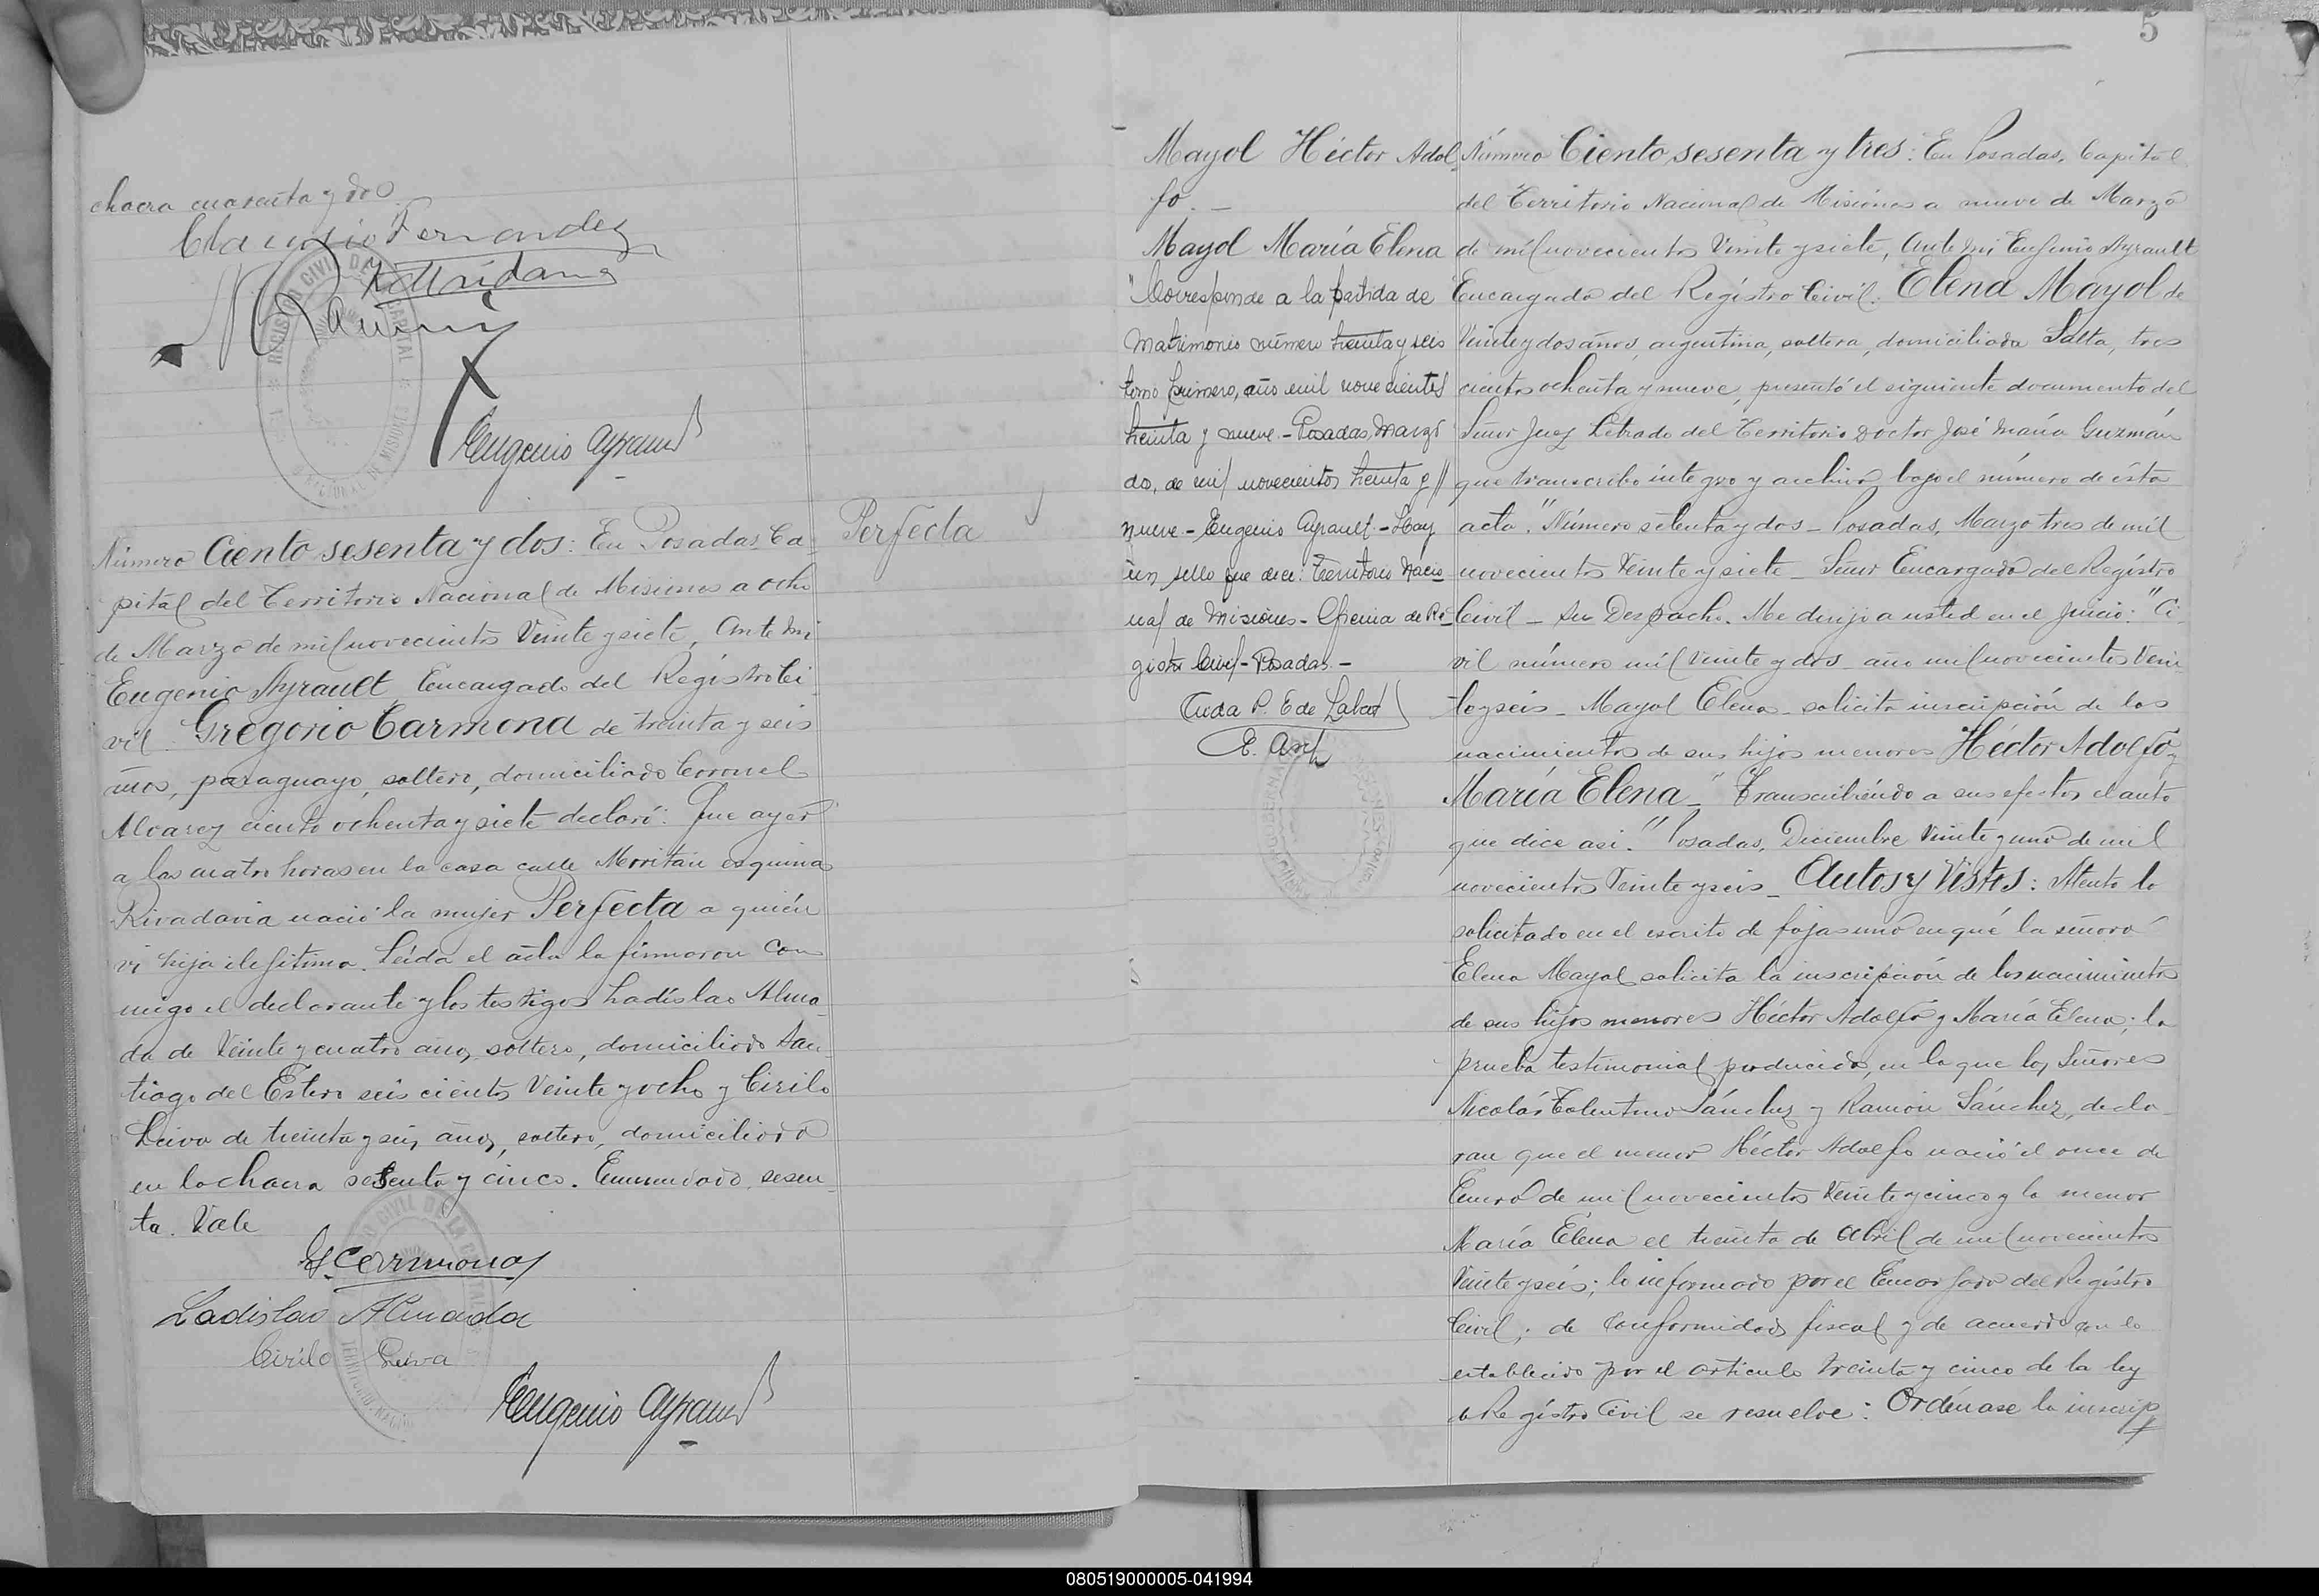 chacra cuarenta y dos
Claudio Fernandez
Eugenio Ayrault
Número Ciento sesenta y dos: En Posadas, Ca-
pital del Territorio Nacional de Misiones a ocho
de Marzo de mil novecientos Veinte y siete, Ante mi
Eugenio Ayrault Encargado del Registro Ci-
vil. Gregorio Carmona de treinta y seis
años, paraguayo, soltero, domiciliado Coronel
Alvarez ciento ochenta y siete declaró: Que ayer
a las cuatro horas en la casa calle esquina
Rivadavia nació la mujer Perfecta a quién
vi hija ilegitima. Leída el acta la firmaron con-
migo el declarante y los testigos Ladislao Alma-
da de Veinte y cuatro años, soltero, domiciliado San-
tiago del Estero seis cientos Veinte y ocho y Cirilo
Leiva de treinta y seis años, soltero, domiciliado
en la chacra sesenta y cinco. Enmendado, sesen-
ta. Vale
G. Carmona
Ladislao Almada
Cirilo Leiva
Eugenio Ayrault
Perfecta
5
Mayol Héctor Adol-
fo. -
Mayol María Elena
"Corresponde a la partida de
Matrimonio número treinta y seis
tomo primero, año mil novecientos
treinta y nueve.- Posadas, Marzo
dos, de mil novecientos treinta y //
nueve.- Eugenio Ayrault.- Hay
un sello que dice: Territorio Nacio-
nal de Misiones - Oficina de Re-
gistro Civil - Posadas.-
Número Ciento sesenta y tres: En Posadas, Capital
del Territorio Nacional de Misiones a nueve de Marzo
de mil novecientos Veinte y siete, Ante mi Eugenio Ayrault
Encargado del Registro Civil. Elena Mayol de
Veinte y dos años, argentina, soltera, domiciliada Salta, tres
cientos ochenta y nueve, presentó el siguiente documento del
Señor Juez Letrado del Territorio Doctor José María Guzmán
que transcribo integro y archivo bajo el número de ésta
acta. "Número setenta y dos - Posadas, Marzo tres de mil
novecientos Veinte y siete - Señor Encargado del Registro
Civil - Su Despacho. Me dirijo a usted en el juicio: "Ci-
vil número mil Veinte y dos - año mil novecientos Vein-
te y seis - Mayol Elena - solicita inscripción de los
nacimientos de sus hijos menores Héctor Adolfo y
María Elena -" Transcribiendo a sus efectos el auto
que dice asi: "Posadas, Diciembre Veinte y uno de mil
novecientos Veinte y seis - Autos y Vistos: Atento lo
solicitado en el escrito de fojas uno en qué la señora
Elena Mayol solicita la inscripción de los nacimientos
de sus hijos menores Héctor Adolfo y María Elena; la
prueba testimonial producida, en la que los Señores
Nicolás Tolentino Sánchez y Ramón Sánchez, decla-
ran que el menor Héctor Adolfo nació el once de
Enero de mil novecientos Veinte y cinco y la menor
María Elena el treinta de Abril de mil novecientos
Veinte y seis; lo informado por el Encargado del Registro
Civil; de Conformidad fiscal y de acuerdo con lo
establecido por el artículo treinta y cinco de la ley
de Registro Civil se resuelve: Ordénase la inscrip
080519000005-041994